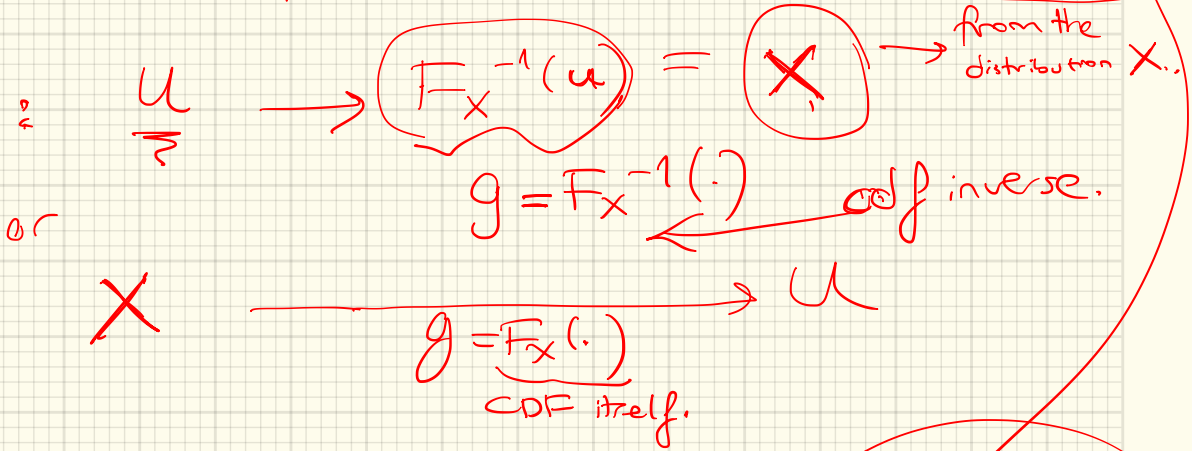 u → F_X^{-1}(u) = X → from the distribution X..
g = F_X^{-1}(.) cdf inverse.
or
X → u
g = F_X(.)
CDF itself.